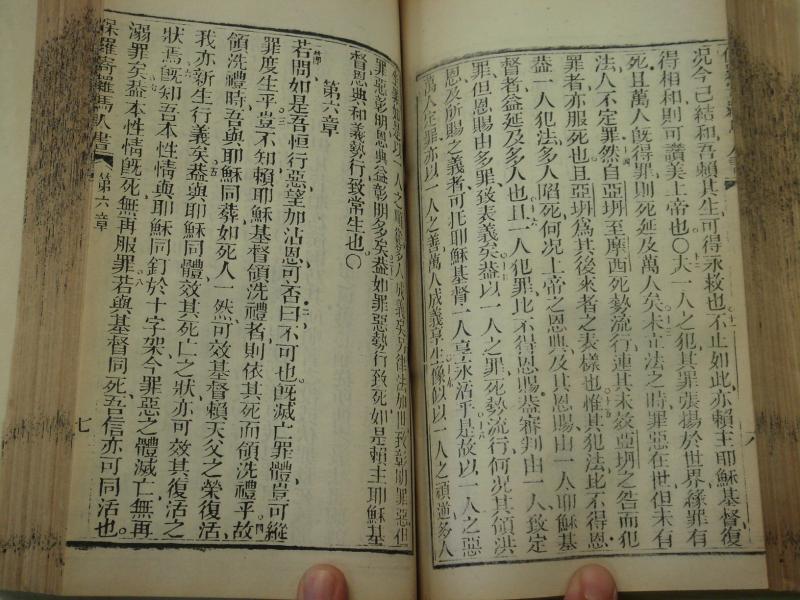 況今已結和吾賴其生可得永救也不止如此亦賴主耶穌基督復
得相和則可讚美上帝也〇夫一人之犯其罪張揚於世界緣罪有
死且萬人既得罪則死延及萬人矣未立法之時罪惡在世但未有
法人不定罪然自亞坍至摩西死勢流行連其未效亞坍之咎而犯
罪者亦服死也且亞坍爲其後來者之表樣也惟其犯法比不得恩
蓋一人犯法多人陷死何况上帝之恩典及其恩賜由一人耶穌基
督者益延及多人也且一人犯罪比不得恩賜蓋審判由一人致定
罪但恩賜由多罪致表義矣蓋以一人之罪死勢流行何況其領洪
恩及所賜之義者可托耶穌基督一人享永活乎是故以一人之惡
萬人定罪亦以一人之義萬人成義享生像似以一人之頑逆多人
罪惡彰明恩典益彰明多矣蓋如罪惡勢行致死如是賴主耶穌基
督恩典和義勢行致常生也〇
第六章
若問如是吾恒行惡望加沾恩可否曰不可也既滅亡罪體豈可縱
罪度生乎豈不知賴耶穌基督領洗禮者則依其死而領洗禮乎故
領洗禮時吾與耶穌同葬如死人一然可效基督賴天父之榮復活
我亦新生行義矣蓋與耶穌同體效其死亡之狀亦可效其復活之
狀焉既知吾本性情與耶穌同釘於十字架今罪惡之體滅亡無再
溺罪矣蓋本性情既死無再服罪若與基督同死吾信亦可同活也
保羅寄羅馬人書
第六章
七